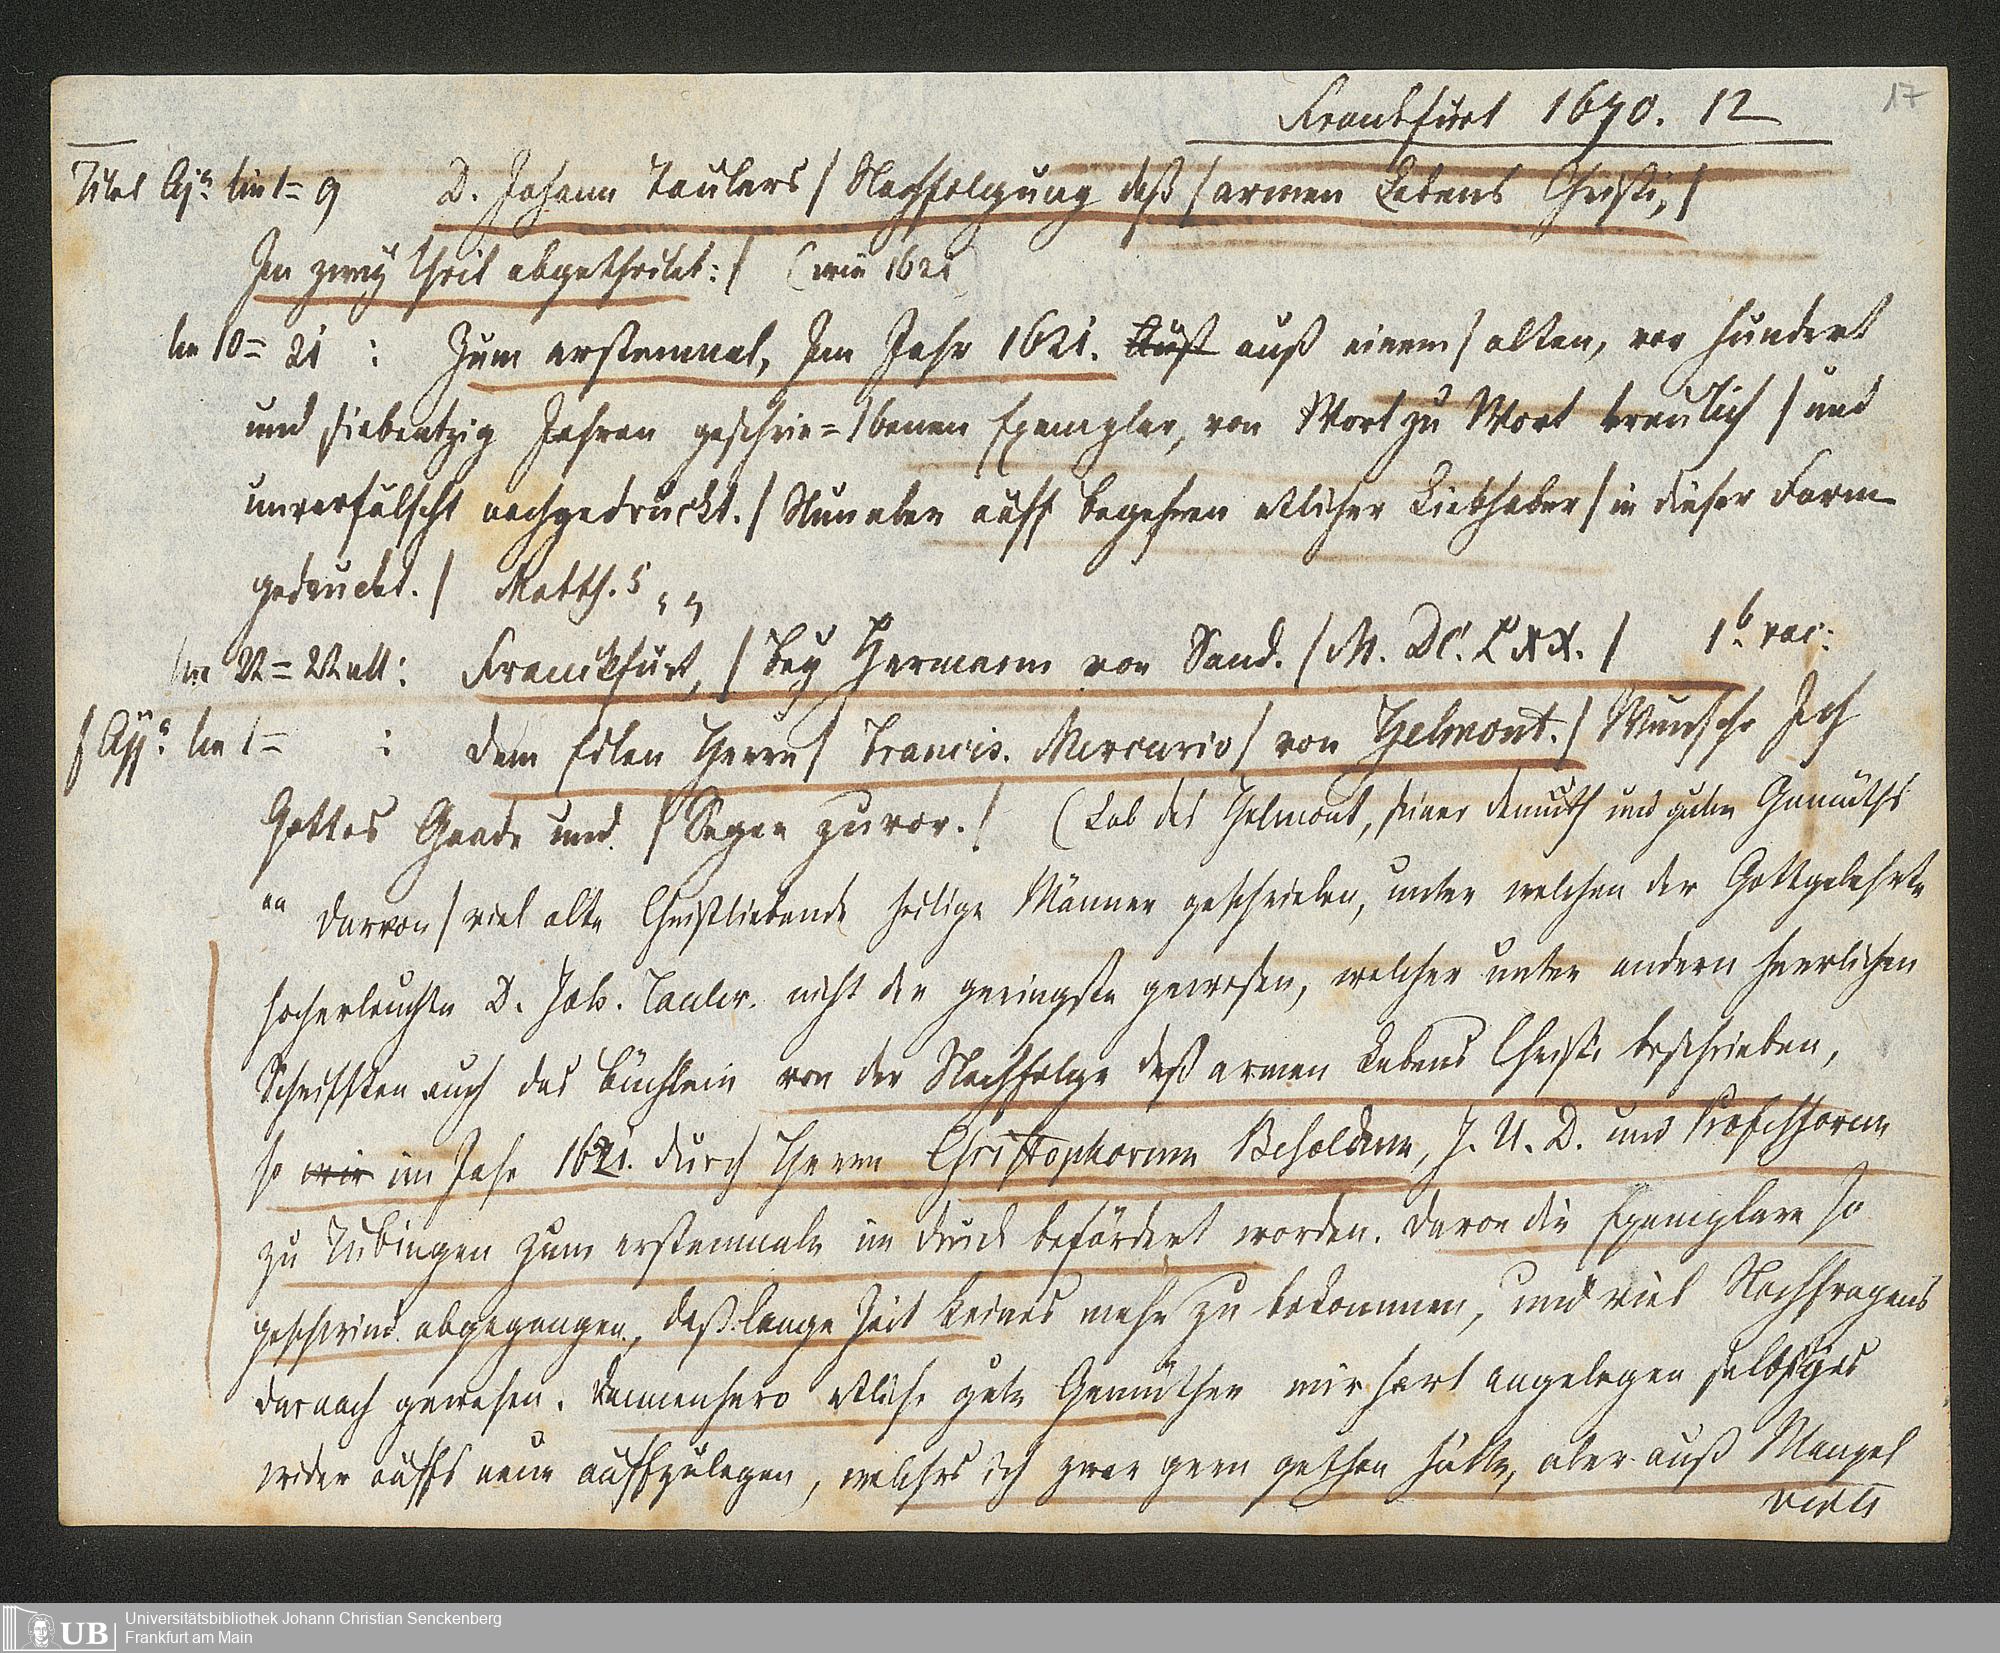 17
Frankfurt 1670. 12
Titel Aja lin 1= 9 D. Johann Taulers / Nachfolgung deß / armen Lebens Christi, /
Jn zwey theil abgetheilet: / (wie 1621
lin 10= 21 : Zum erstenmal, Jm Jahr 1621. auß einem / alten, vor hundert
und siebentzig Jahren geschrie= / benen Exemplar, von Wort zu Wort treulich / und
unverfälscht nachgedruckt. / Nun aber auff begehren etlicher Liebhaber / in dieser Form
gedruckt. / Matth. 5
lin 22= : Franckfurt, / Bey Hermann von Sand. / M. DC. LXX. / 1b vac:
lin 1= : Dem Edlen Herrn / Francis. Mercurio / von Helmont. / Wunsche Jch
Gottes Gnade und / Segen zuvor. / (Lob des Helmont, seiner Demuth und guten Gemüths
darvon / viel alte Christliebende heilige Männer geschrieben, unter welchen der Gottgelehrte
hocherleuchte D. Joh. Tauler. nicht der geringste gewesen, welcher unter andern herrlichen
Schrifften auch das Büchlein von der Nachfolge deß armen Lebens Christi beschrieben,
so wir im Jahr 1621. durch Herrn Christophorum Besoldum, J. U. D. und Professorem
zu Tubingen zum erstenmale im Druck befördert worden. Davon die Exemplare so
geschwind abgegangen, daß lange Zeit keines mehr zu bekommen, und viel Nachfragens
darnach gewesen. Dannenhero etliche gute Gemüther mir hart angelegen selbiges
wider auffs neue auffzulegen, welches ich zwar gern gethan hätte, aber auß Mangel
Universitätsbibliothek Johann Christian Senckenberg
UB Frankfurt am Main